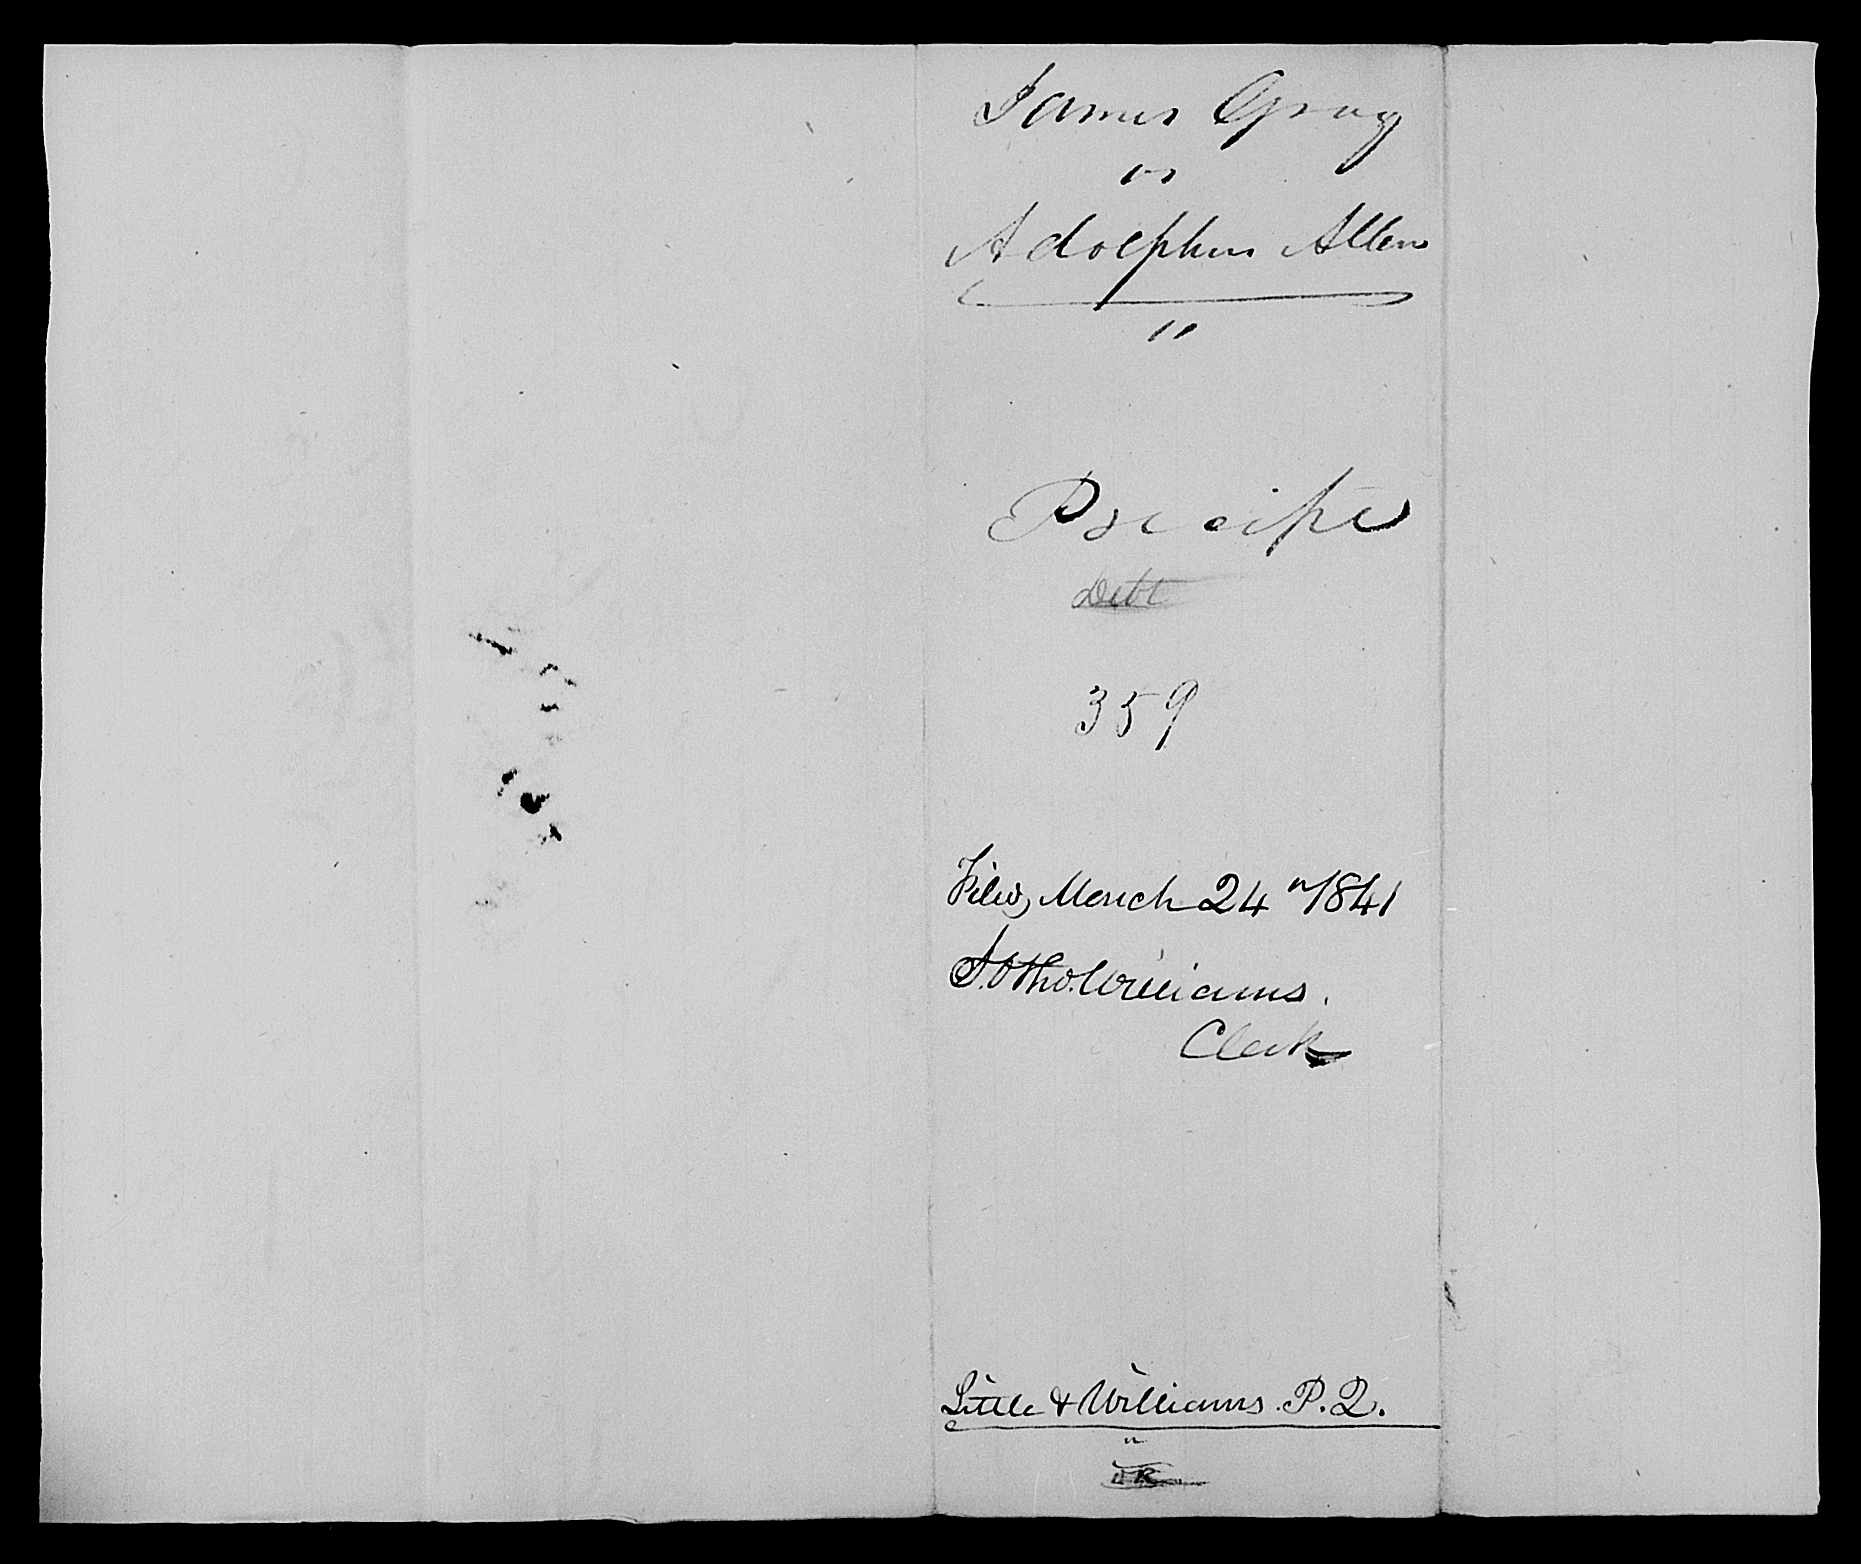 James Gray
vs
Adolphus Allen
"
Precipe
Debt
359
Filed, March 24" 1841
J. Otho. Williams.
Clerk
Little & Williams. P. Q.
"